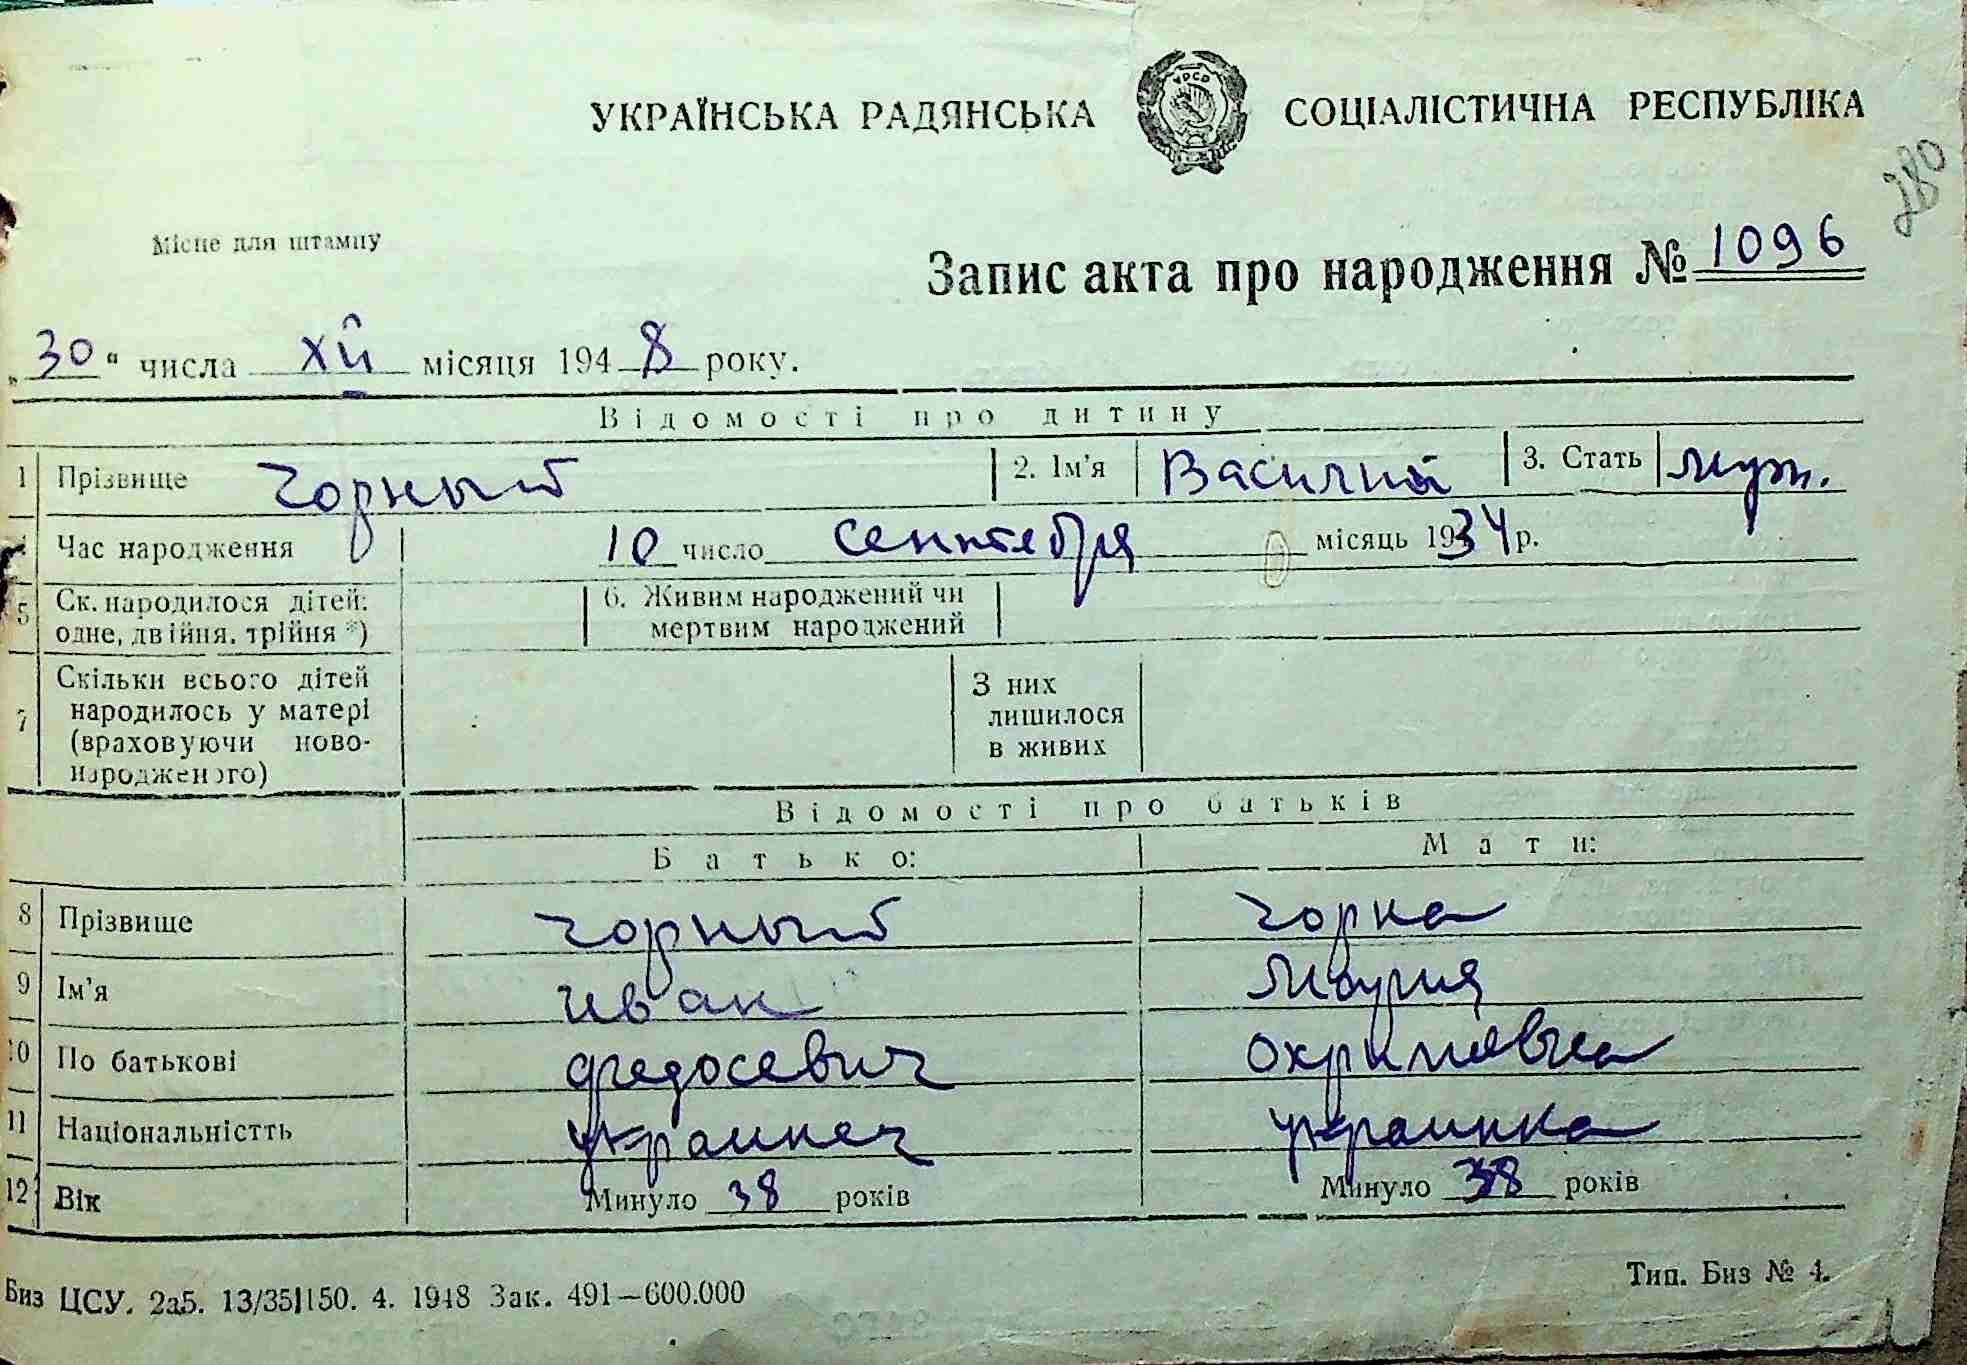 УКРАЇНСЬКА РАДЯНСЬКА СОЦІАЛІСТИЧНА РЕСПУБЛІКА
УРСР
280
Місце для штампу
Запис акта про народження № 1096
„30“ числа XII місяця 1948 року.
Відомості про дитину
1 Прізвище Чорный 2. Ім'я Василий 3. Стать муж.
Час народження 10 число сентября місяць 1934 р.
5 Ск. народилося дітей: одне, двійня, трійня *) 6. Живим народжений чи мертвим народжений
7 Скільки всього дітей народилось у матері (враховуючи новонародженого) З них лишилося в живих
Відомості про батьків
Батько: Мати:
8 Прізвище Чорный Чорна
9 Ім'я Иван Мария
10 По батькові Федосевич Охримовна
11 Національністть украинец украинка
12 Вік Минуло 38 років Минуло 38 років
Биз ЦСУ. 2а5. 13/35/150. 4. 1948 Зак. 491—600.000 Тип. Биз № 4.